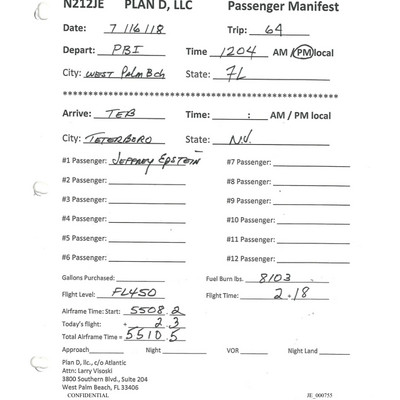 N212JE PLAN D, LLC Passenger Manifest
Date: 7/16/18 Trip: 64
Depart: PBI Time 1204 AM / PM local
City: WEST PALM BCH State: FL
********************************************************
Arrive: TEB Time: : AM / PM local
City: TETERBORO State: NJ
#1 Passenger: JEFFREY EPSTEIN #7 Passenger:
#2 Passenger: #8 Passenger:
#3 Passenger: #9 Passenger:
#4 Passenger: #10 Passenger:
#5 Passenger: #11 Passenger:
#6 Passenger: #12 Passenger:
Gallons Purchased: Fuel Burn lbs. 8103
Flight Level: FL450 Flight Time: 2.18
Airframe Time: Start: 5508.2
Today's flight: + 2.3
Total Airframe Time = 5510.5
Approach Night VOR Night Land
Plan D, llc., c/o Atlantic
Attn: Larry Visoski
3800 Southern Blvd., Suite 204
West Palm Beach, FL 33406
CONFIDENTIAL JE_000755